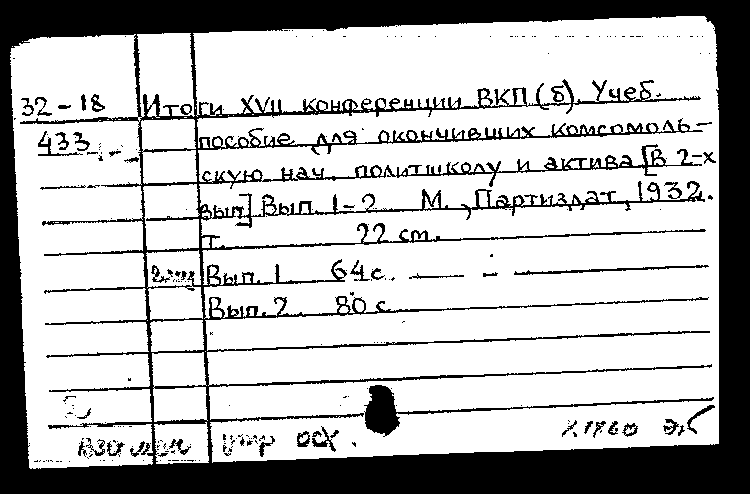 32-18 Итоги XVII конференции ВКП(б). Учеб.
433 пособие для окончивших комсомоль-
скую нач. политшколу и актива [В 2-х
вып] Вып. 1-2 М., Партиздат, 1932.
т. 22 cm.
2 экз Вып. 1. 64 с. — - —
Вып. 2. 80 с.
2
Взамен утр осх.